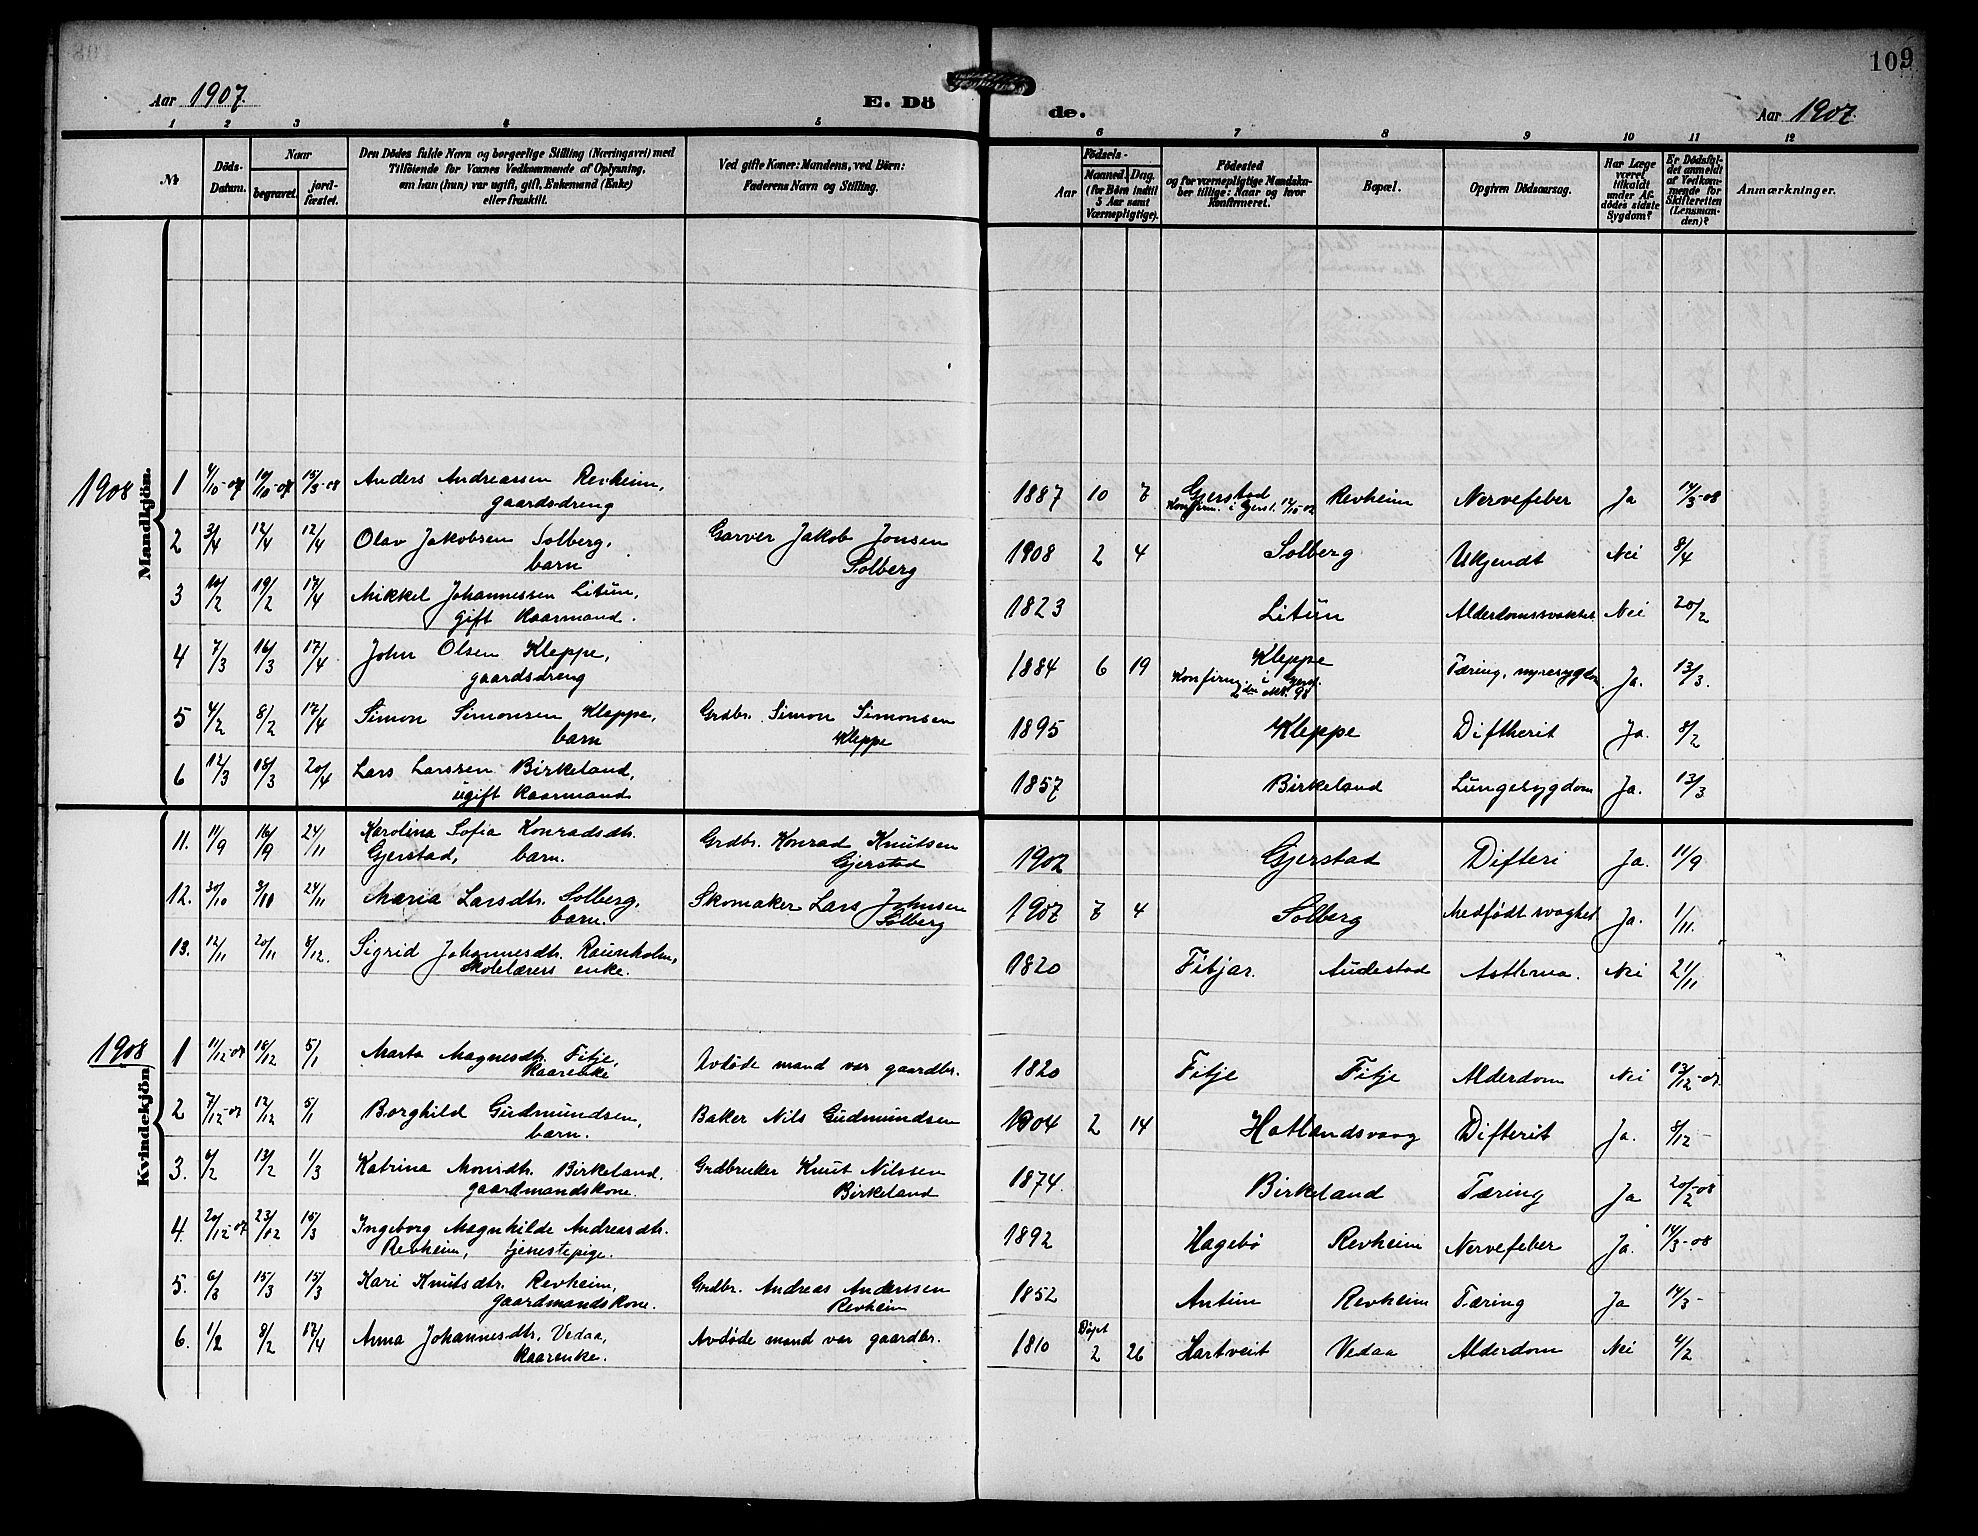 109
Aar 1907.
E. Dö
de.
Aar 1907.
1 2 3 4 5 6 7 8 9 10 11 12
Nr
Döds-
Datum.
Naar
begravet.
jord-
fæstet.
Den Dödes fulde Navn og borgerlige Stilling (Næringsvei) med
Tilföiende for Voxnes Vedkommende af Oplysning,
om han (hun) var ugift, gift, Enkemand (Enke)
eller fraskilt.
Ved gifte Koner: Mandens, ved Börn:
Faderens Navn og Stilling.
Födsels-
Aar
Maaned. Dag.
(for Börn indtil
5 Aar samt
Værnepligtige).
Födested
og for værnepligtige Mandska-
ber tillige: Naar og hvor
konfirmeret.
Bopæl.
Opgiven Dödsaarsag.
Har Læge
været
tilkaldt
under Af-
dödes sidste
Sygdom?
Er Dödsfal-
det anmeldt
af Vedkom-
mende for
Skifteretten
(Lensman-
den)?
Anmærkninger.
1908
Mandkjön.
1 4/10-07 10/10-07 15/3-08 Anders Andreassen Revheim, 1887 10 7 Gjerstad Revheim Nervefeber Ja 14/3-08
gaardsdreng Konfirm. i Gjerst. 12/10-02
2 3/4 12/4 12/4 Olav Jakobsen Solberg, Garver Jakob Jonsen 1908 2 4 Solberg Ukjendt Nei 8/4
barn Solberg
3 10/2 19/2 17/4 Mikkel Johannessen Litun, 1823 Litun Alderdomssvakhet Nei 20/2
gift kaarmand.
4 7/3 16/3 17/4 John Olsen Kleppe, 1884 6 19 Kleppe Tæring, nyresygdom Ja. 13/3.
gaardsdreng Konfirm. i Gjerst.
2den okt. 98
5 4/2 8/2 17/4 Simon Simonsen Kleppe, Grdbr. Simon Simonsen 1895 Kleppe Diftherit Ja. 8/2
barn Kleppe
6 12/3 18/3 20/4 Lars Larssen Birkeland, 1857 Birkeland Lungesygdom Ja. 13/3
ugift kaarmand
11. 11/9 16/9 24/11 Karolina Sofia Konradsdtr. Grdbr. Konrad Knutsen 1902 Gjerstad Difteri Ja. 11/9
Gjerstad, barn. Gjerstad
12. 30/10 24/11 Maria Larsdtr. Solberg, Skomaker Lars Johnsen 1907 7 4 Solberg Medfødt svaghed Ja. 1/11.
barn. Solberg
13. 12/11 20/11 8/12. Sigrid Johannesdtr. Raunholm, 1820 Fitjar. Audestad Asthma. Nei 21/11
Skolelærers enke.
1908
Kvindekjön
1 11/12-07 16/12 5/1 Marta Magnesdtr. Fitje, Avdøde mand var gaardbr. 1820 Fitje Fitje Alderdom Nei 13/12-07
kaarenke
2 7/12-07 13/12 5/1 Borghild Gudmundsen, Baker Nils Gudmundsen 1904 2 14 Hatlandsvaag Difterit Ja. 8/12-
barn.
3. 6/2 13/2 1/3 Katrina Monsdtr. Birkeland, Grdbruker Knut Nilssen 1874. Birkeland Tæring Ja 20/2-08
gaardmandskone. Birkeland
4. 20/12-07 23/12 15/3 Ingeborg Magnhilde Andreasdtr. 1892 Hagebø Revheim Nervefeber Ja. 14/3-08
Revheim, tjenestepige.
5. 6/3 15/3 15/3 Kari Knutsdtr. Revheim, Grdbr. Andreas Anderssen 1852 Antun Revheim Tæring Ja 14/3-
gaardmandskone. Revheim
6. 1/2 8/2 17/4 Anna Johannesdtr. Vedaa, Avdøde mand var gaardbr. 1810 Døpt 2 26 Hartveit Vedaa Alderdom Nei 4/2
kaarenke.